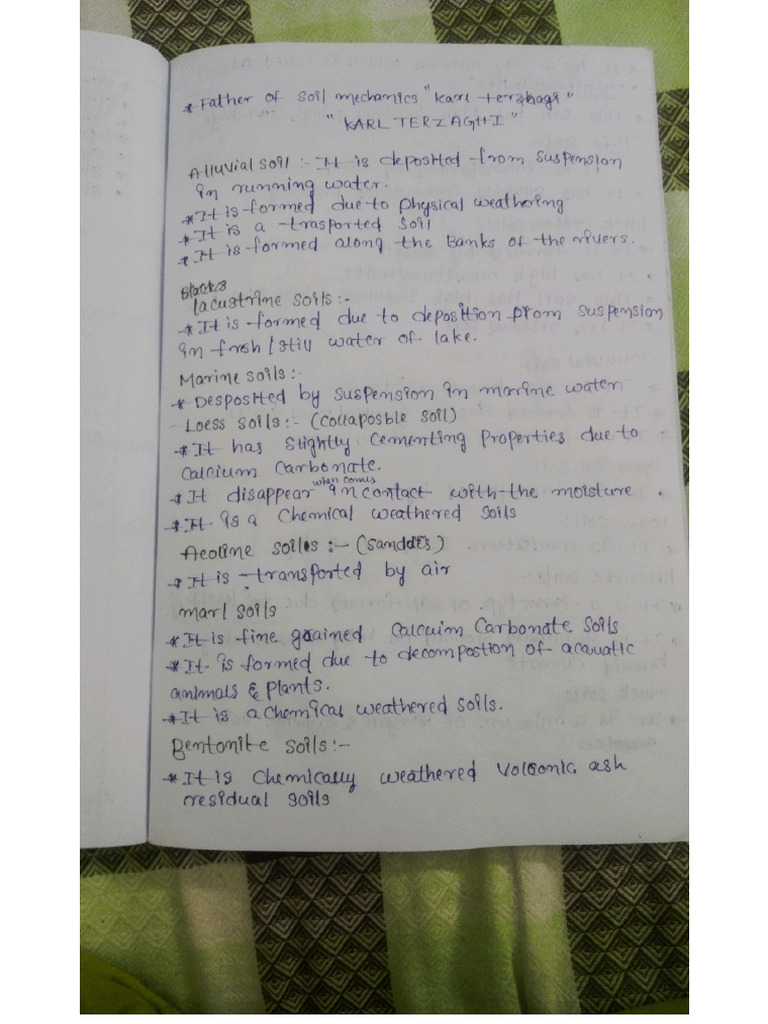 * Father of Soil mechanics "Karl terzhagi"
"KARL TERZAGHI"
Alluvial soil :- It is deposited from suspension
in running water.
* It is formed due to physical weathering
* It is a trasported Soil
* It is formed along the Banks of the rivers.
lacustrine soils :-
* It is formed due to deposition from suspension
in fresh / still water of lake.
Marine soils :-
* Desposited by suspension in marine water
Loess soils :- (collaposble soil)
* It has slightly cementing Properties due to
calcium carbonate.
when comes
* It disappear in contact with the moisture .
* It is a chemical weathered soils
Aeoline soils :- (Sanddes)
* It is transported by air
marl soils
* It is fine grained Calcuim Carbonate Soils
* It is formed due to decompostion of acauatic
animals & plants.
* It is a chemical weathered soils.
Bentonite soils :-
* It is chemically weathered volconic ash
residual soils